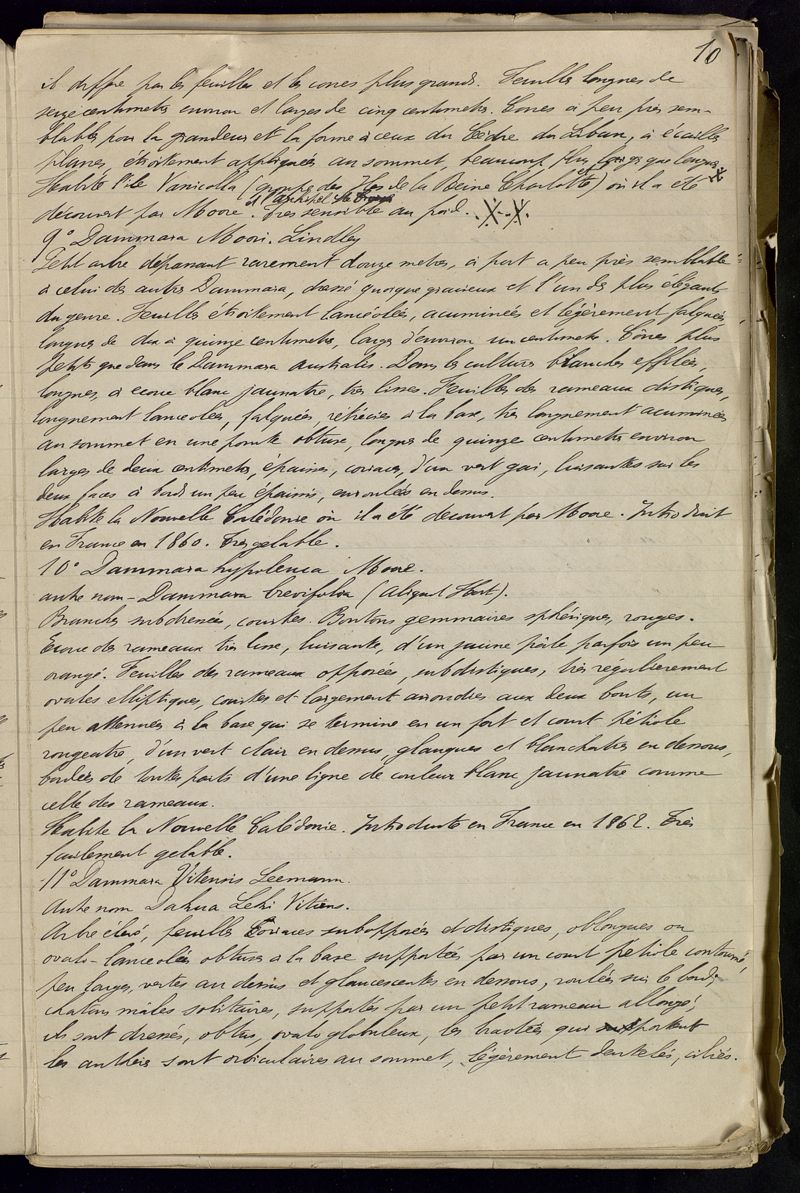 10
il diffère par les feuilles et les cones plus grands. Feuilles longues de
seize centimetres environ et larges de cinq centimetres. Cones à peu près sem-
blables pour la grandeur et la forme à ceux du Cèdre du Liban, à écailles
planes, étroitement appliquées au sommet, beaucoup plus larges que longues
Habite l'île Vanicolla (groupe des Iles de la Reine Charlotte) où il a été
découvert par Moore. Très sensible au froid.
9° Dammara Moori. Lindley
Petit arbre dépassant rarement douze metres, à port à peu près semblable
à celui des autres Dammara, dressé quoique gracieux et l'un des plus élégants
du genre. Feuilles étroitement lancéolées, acuminées et légèrement falquées,
longues de dix à quinze centimetres, larges d'environ un centimetre. Cônes plus
petits que dans le Dammara australis. Dans les cultures branches effilées,
longues, à ecorce blanc jaunatre, très lisses. Feuilles des rameaux distiques,
longuement lanceolées, falquées, rétrécies à la base, très longuement acuminées
au sommet en une pointe obtuse, longues de quinze centimetres environ
larges de deux centimetres, épaisses, coriaces, d'un vert gai, luisantes sur les
deux faces à bords un peu épaissis, enroulés en dessus.
Habite la Nouvelle Calédonie où il a été decouvert par Moore. Introduit
en France en 1860. Très gelable.
10° Dammara hypoleuca Moore.
autre nom - Dammara brevifolia (Aliquot Hort).
Branches subdressées, courtes. Boutons gemmaires sphériques, rouges.
Ecorce des rameaux très lisse, luisante, d'un jaune pâle parfois un peu
orangé. Feuilles des rameaux opposées, subdistiques, très regulierement
ovales elliptiques, courtes et largement arrondies aux deux bouts, un
peu attennuées à la base qui se termine en un fort et court pétiole
rougeatre, d'un vert clair en dessus, glauques et blanchatres en dessous,
bordées de toutes parts d'une ligne de couleur blanc jaunatre comme
celle des rameaux.
Habite la Nouvelle Calédonie. Introduite en France en 1862. Très
facilement gelable.
11° Dammara Vitensis Seemann.
Autre nom Dakua Leki Vitiens.
Arbre élevé, feuilles coriaces subopposées et distiques, oblongues ou
ovato-lanceolées obtuses à la base supportées par un court pétiole contourné,
peu larges, vertes au dessus et glaucescentes en dessous, roulées sur le bord;
chatons mâles solitaires, supportés par un petit rameau allongé;
ils sont dressés, obtus, ovato globuleux, les bractées qui supportent
les anthères sont orbiculaires au sommet, légèrement dentelés, ciliés.